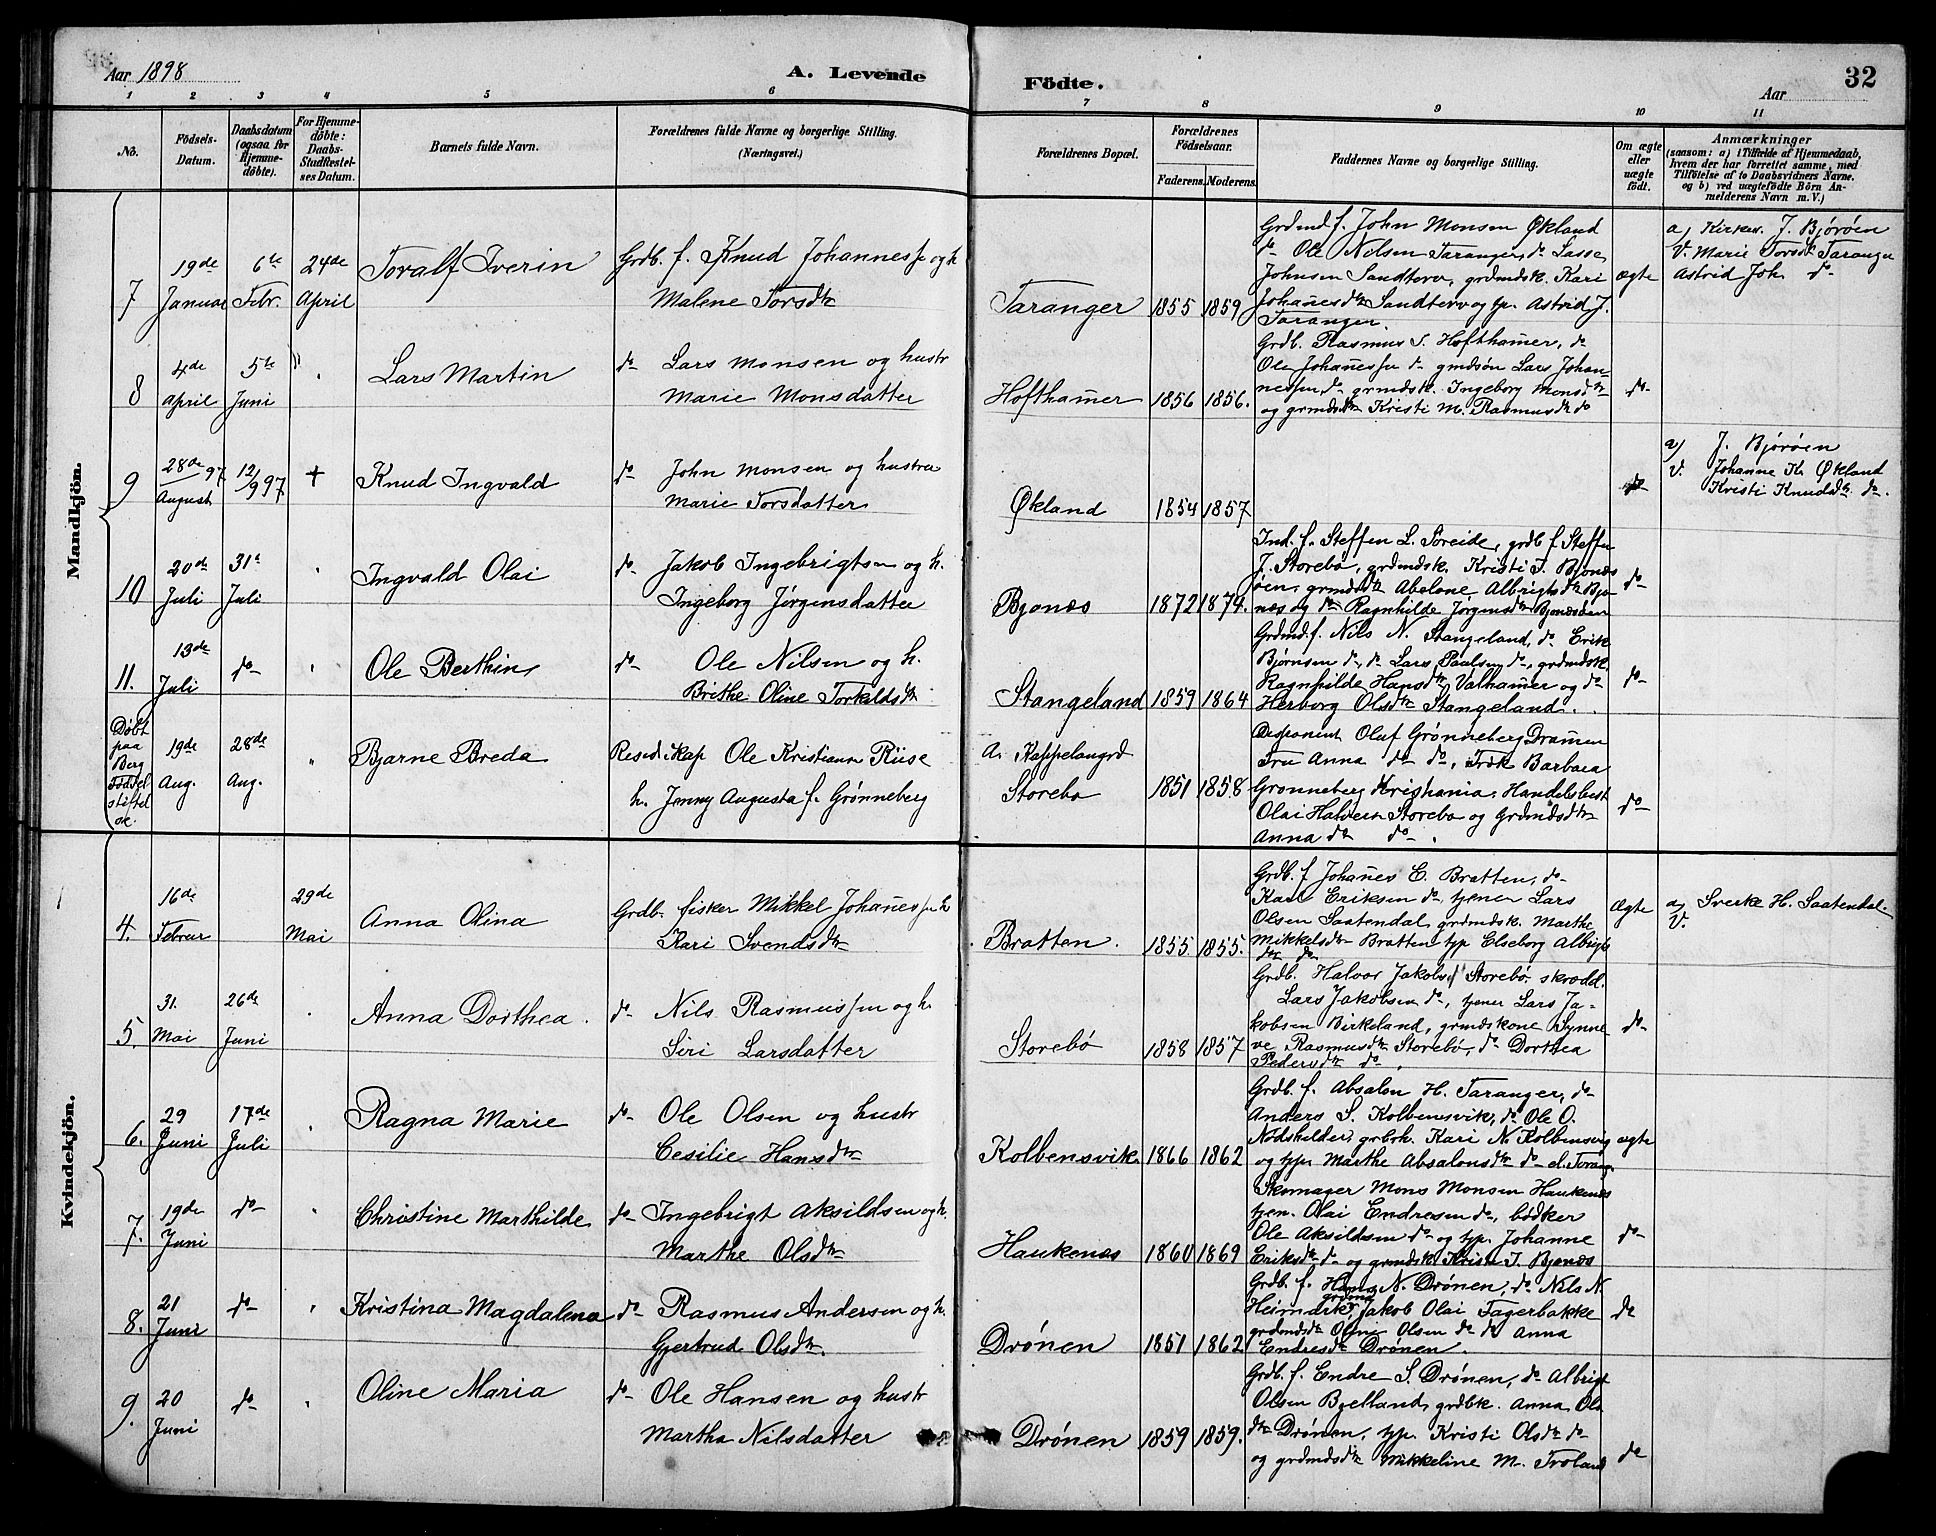 Aar 1898
A. Levende
Födte.
32
Aar
1
2
3
4
5
6
7
8
9
10
11
No.
Födsels-
Datum.
Daabsdatum
(ogsaa for
Hjemme-
döbte).
For Hjemme-
döbte:
Daabs-
Stadfæstel-
ses Datum.
Barnets fulde Navn.
Forældrenes fulde Navne og borgerlige Stilling.
(Næringsvei.)
Forældrenes Bopæl.
Forældrenes
Födselsaar.
Faderens.
Moderens.
Faddernes Navne og borgerlige Stilling.
Om ægte
eller
uægte
födt.
Anmærkninger
(saasom: a) i Tilfælde af Hjemmedaab,
hvem der har forrettet samme, med
Tilföielse af to Daabsvidners Navne.
og b) ved uægtefödte Börn An-
melderens Navn m. V.)
Mandkjön.
7
19de
Januar
6te
Febr.
24de
April
Toralf Iverin
Grdb. f. Knud Johannessen og h
Malene Torsdtr
Taranger
1855
1859
Grdmd f. John Monsen Økland
do Ole Nilsen Taranger, do Lasse
Johnsen Sandterv, grdmdsk. Kari
Johannesdtr Sandterv og tp. Astrid J.
Taranger.
ægte
a) Kirkes. J. Bjørøen
V. Marie Torsdtr Taranger
Astrid Joh. do
8
4de
April
5te
Juni
Lars Martin
do Lars Monsen og hustr
Marie Monsdatter
Hofthamer
1856
1856.
Grdb. Rasmus S. Hofthamer, do
Ole Johannessen do gmdsön Lars Johan-
nessen do grmdsk. Ingeborg Monsdtr
og grmdsdtr Kristi M. Rasmusdtr do
do
9
28de 97
August
12/9 97
+
Knud Ingvald
do John Monsen og hustru
Marie Torsdatter
Økland
1854
1857
do
a) J. Bjørøen
V. Johanne K. Økland
Kristi Knudsdtr do.
10
20de
Juli
31te
Juli
Ingvald Olai
do Jakob Ingebrigtsen og h.
Ingeborg Jørgensdatter
Bjonæs
1872
1874.
Ind. f. Steffen L. Søreide, grdb f. Steffen
J. Storebø, grdmdsk. Kristi J. Bjonæs
øen, grmdsdtr Abelone Albrigtsdtr Bjo
næs og do Ragnhilde Jørgensdtr Bjonæsøen
do
11.
13de
Juli
do
Ole Berthin
do Ole Nilsen og h.
Brithe Oline Torkildsdtr
Stangeland
1859
1864
Grdmd. f. Nils N. Stangeland, do Erik
Bjørnsen do, do Lars Paulsen do, grdmdsk.
Ragnhilde Hansdtr Valhamer og do
Herborg Olsdtr Stangeland.
do
Døbt
paa
Berg
Fødsel
stiftel
se.
19de
Aug.
28de
Aug.
Bjarne Breda
Resid. Kap Ole Kristian Riise
h. Jenny Augusta f. Grønneberg
a. Kappelangrd
Storebø
1851
1858
Disponent Oluf Grønneberg Dramen
Fru Anna do do, Frøk Barbara
Grønneberg Kristiania, Handelsbest
Olai Halvorsen Storebø og Grdmdsdtr
Anna do do.
do
Kvindekjön.
4.
16de
Februar
29de
Mai
Anna Olina
Grdb. fisker Mikkel Johannessen h
Kari Svendsdtr
Bratten.
1855
1855.
Grdb. f Johanes E. Bratten, do
Karl Eriksen do, tjener Lars
Olsen Saatendal, grdmdsk. Marthe
Mikkelsdtr Bratten tp Elseborg Albrigts
dtr do
Ægte
a) Sverke H. Saatendal.
V.
5.
31.
Mai
26de
Juni
Anna Dorthea.
do Nils Rasmussen og h.
Siri Larsdatter
Storebø
1858
1857
Grdb. Halvor Jakobs. Storebø, skrædd.
Lars Jakobsen do, tjener Lars Ja-
kobsen Birkeland, grmdskone Synne
ve Rasmusdtr Storebø, do Dorthea
Pedersdtr do.
do
6.
29
Juni
17de
Juli
Ragna Marie
do Ole Olsen og hustr
Cesilie Hansdtr
Kolbensvik.
1866
1862
Grdb. f. Absalon H. Taranger, do
Anders S. Kolbensvik, do Ole O.
Nødskelder, grbsk. Kari N. Kolbensvig
og tp. Marthe Absalonsdtr do
ægte
7.
19de
Juni
do
Christine Marthilde
do Ingebrigt Aksildsen og h.
Marthe Olsdtr
Haukenæs
1860
1869
Skomager Mons Monsen Haukenæs
tjen. Olai Endresen do, bødker
Ole Aksildsen do og tp. Johanne
Eriksdtr do og grmdsk Kristi J. Bjonæs
do
8.
21
Juni
do
Kristina Magdalena
do Rasmus Andersen og h.
Gjertrud Olsdtr.
Drönen
1851
1862
Grdb. f. Hans N. Drönen, do Nils N.
Jakob Olai Fagerbakke
grdmdsdtr Oline Olsen do do Anna
Endresdtr Drönen.
do
9.
20
Juni
do
Oline Maria
do Ole Hansen og hustr
Martha Nilsdatter
Drönen
1859
1859.
Grdb. f. Endre S. Drönen, do Albrigt
Olsen Bjelland, grdbk. Anna Ols
dtr Drönen, tp. Kristi Olsdtr do
og grdmdsdtr Mikkeline M. Troland
do